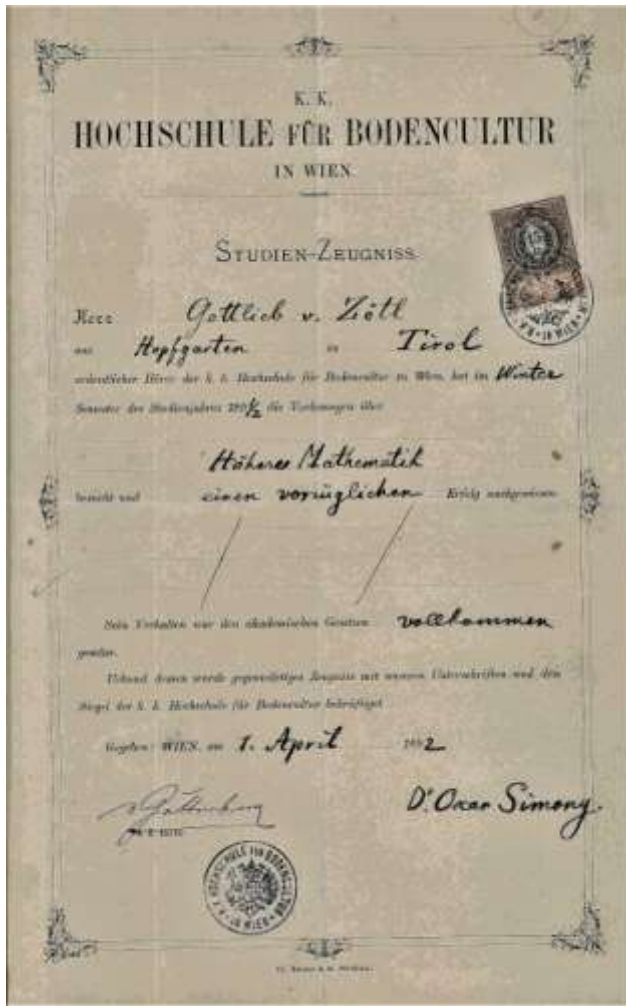 K. K.
HOCHSCHULE FÜR BODENCULTUR
IN WIEN.
STUDIEN-ZEUGNISS.
15
Herr Gottlieb v. Zötl
aus Hopfgarten in Tirol
ordentlicher Hörer der k. k. Hochschule für Bodencultur in Wien, hat im Winter
Semester des Studienjahres 1891/2 die Vorlesungen über
Höhere Mathematik
besucht und einen vorzüglichen Erfolg nachgewiesen.
Sein Verhalten war den akademischen Gesetzen vollkommen
gemäss.
Urkund dessen wurde gegenwärtiges Zeugniss mit unseren Unterschriften und dem
Siegel der k. k. Hochschule für Bodencultur bekräftiget.
Gegeben: WIEN, am 1. April 1892
Dr. Oscar Simony.
K. K. HOCHSCHULE FÜR BODENCULTUR IN WIEN